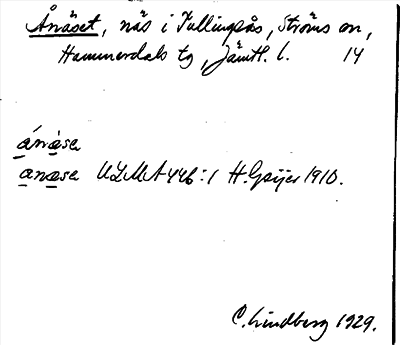 Ånäset, näs i Tullingsås, Ströms sn,
Hammerdals tg, Jämtl. l. 14
ánæsa
anæsa ULMA 446:1 H. Geijer 1910.
C. Lindberg 1929.